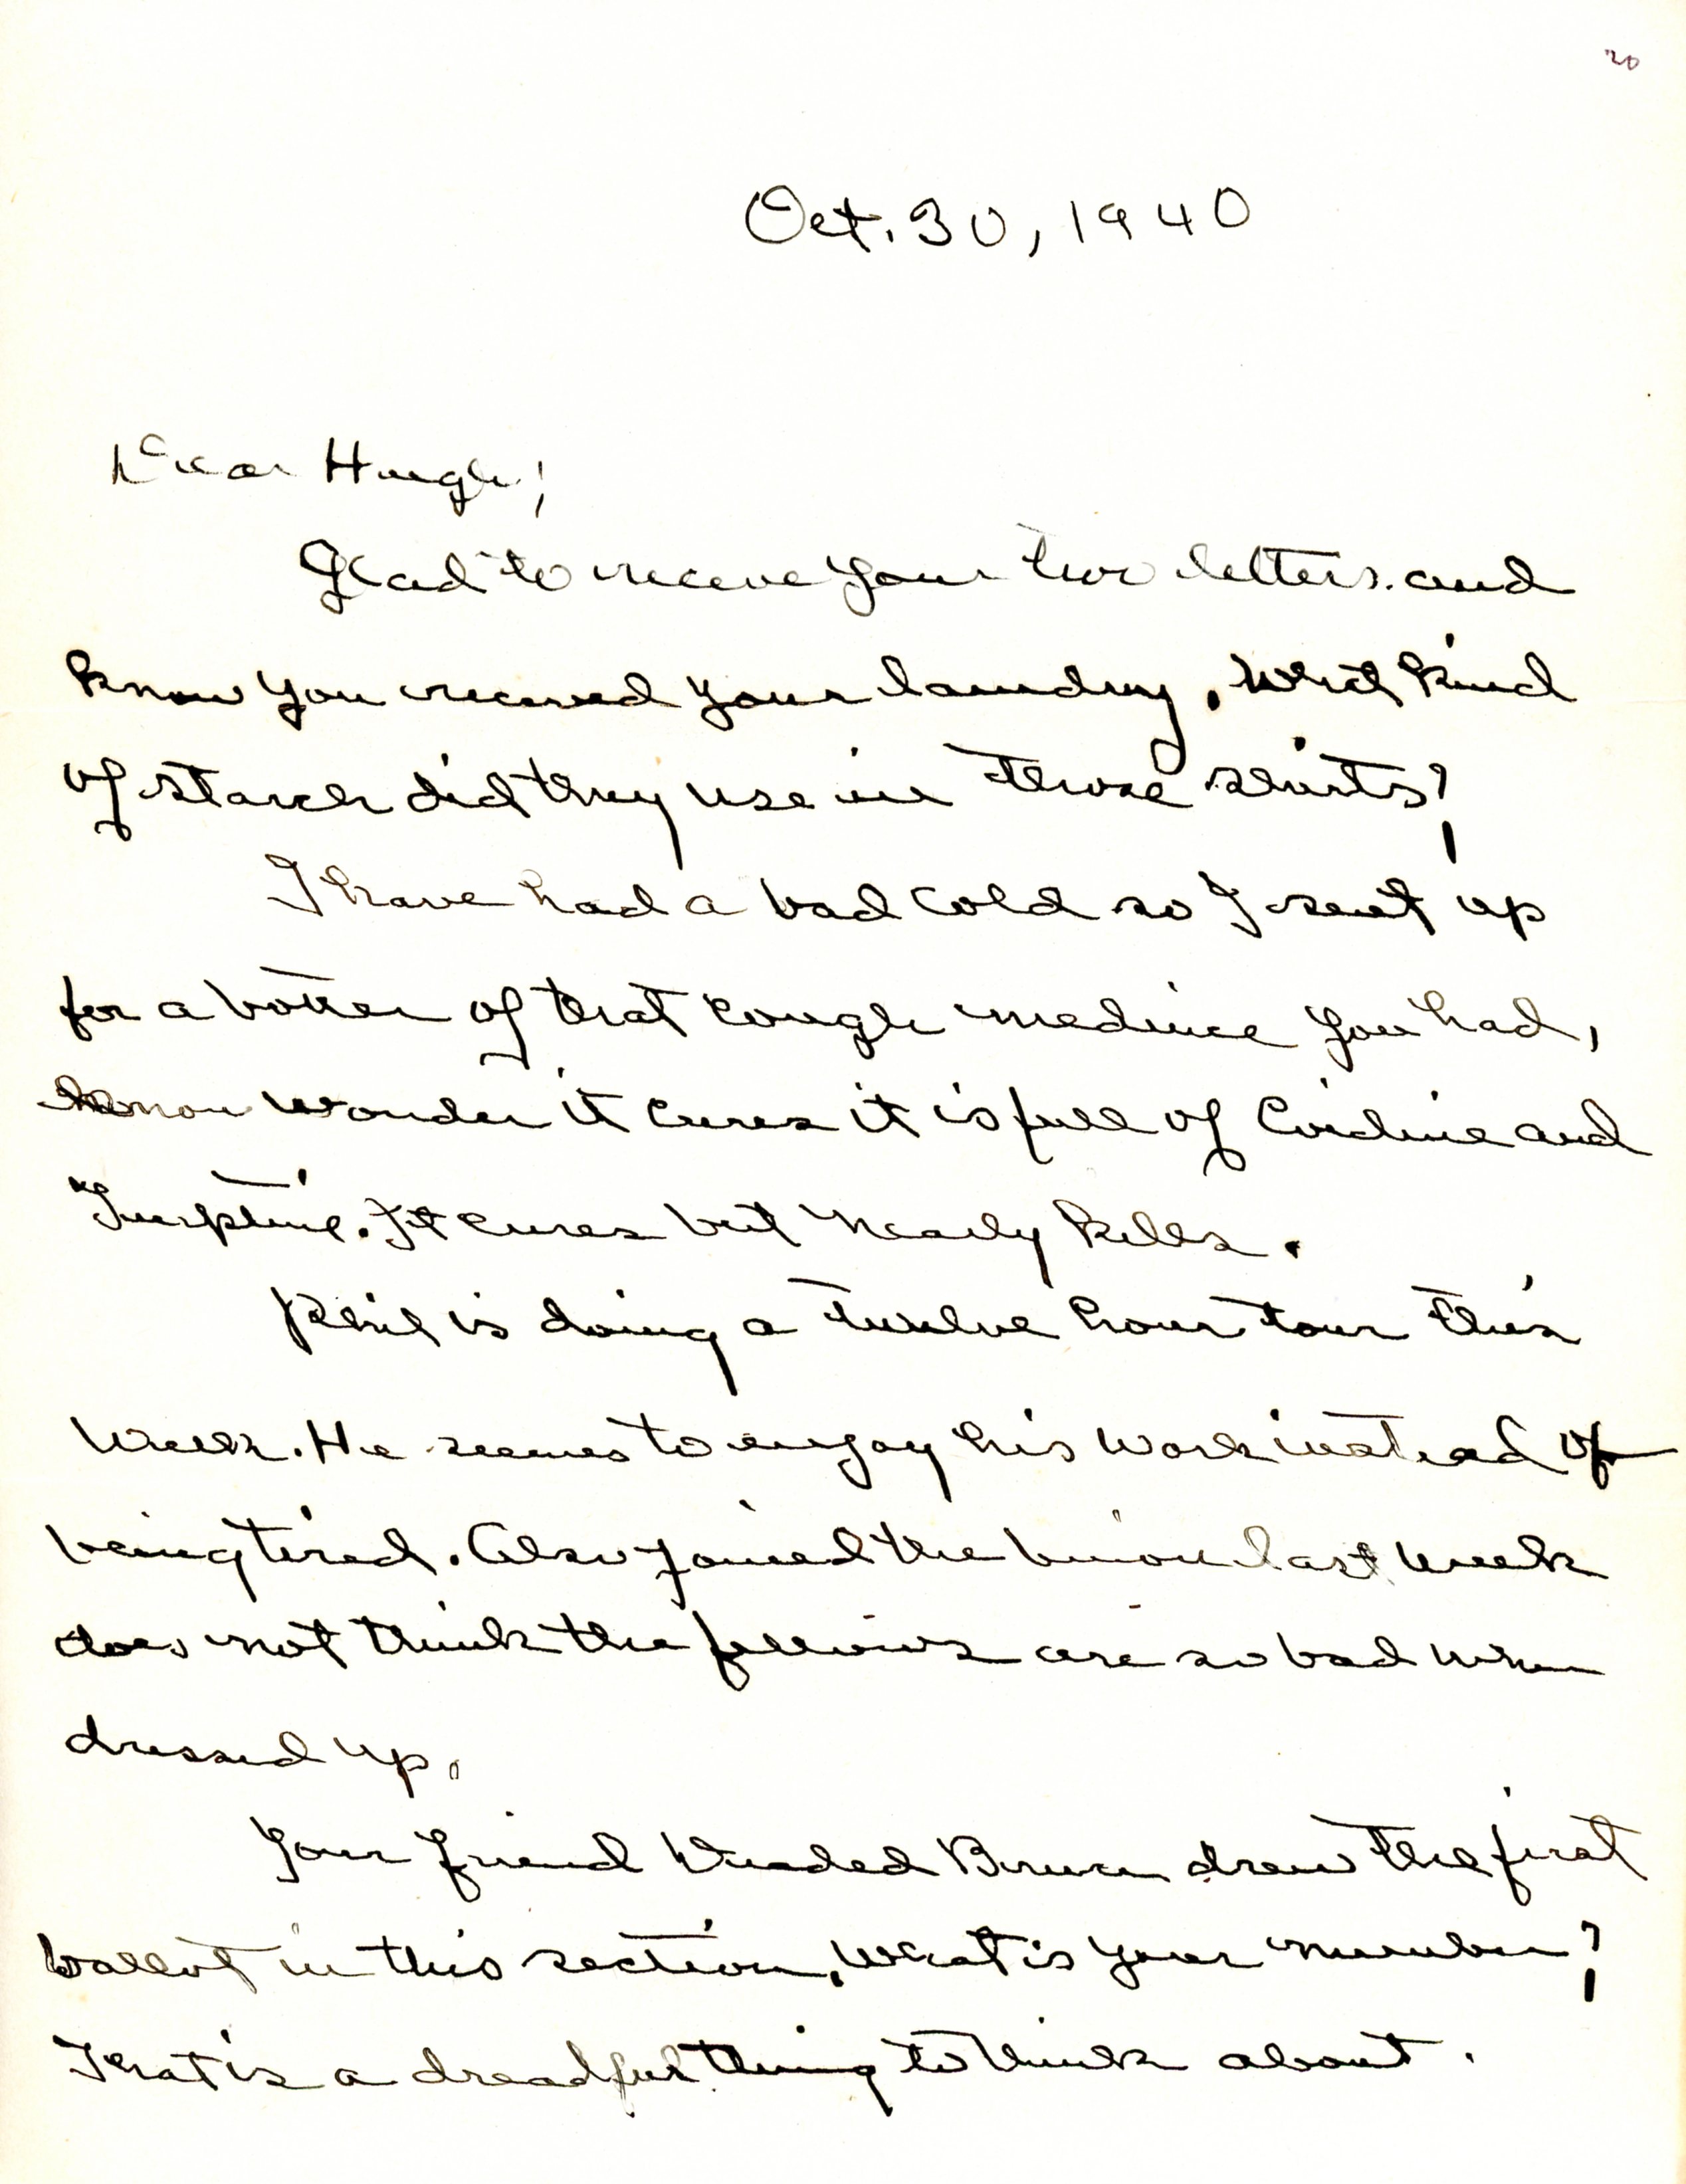 20
Oct. 30, 1940
Dear Hugh;
Glad to receive your two letters. and
know you received your laundry. What kind
of starch did they use in those shirts?
I have had a bad cold so I sent up
for a bottle of that cough medince you had,
know wonder it cures it is full of and
It cures but nearly kills.
Phil is doing a twelve hour tour this
week. He seems to enjoy his work instead of
being tired. Also joined the Union last week
does not think the fellows are so bad when
dressed up.
Your friend drew the first
ballot in this section. What is your number?
That is a dreadful thing to think about.